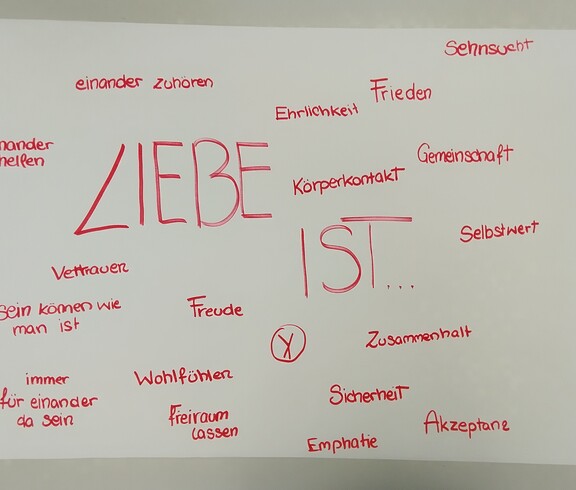 Sehnsucht
einander zuhören
Frieden
Ehrlichkeit
nander
helfen
LIEBE
Gemeinschaft
Körperkontakt
IST...
Selbstwert
Vertrauen
sein können wie
man ist
Freude
Zusammenhalt
immer
für einander
da sein
Wohlfühlen
Sicherheit
Freiraum
lassen
Akzeptanz
Emphatie